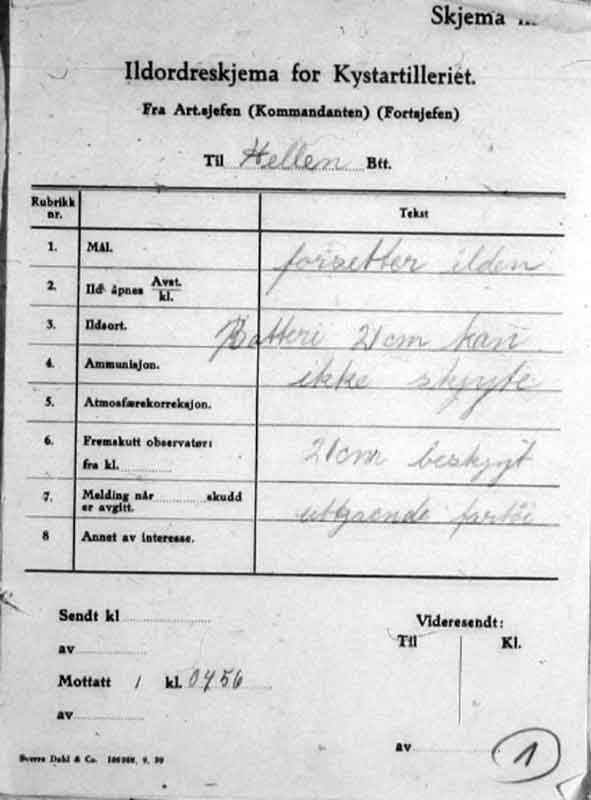 Skjema
Ildordreskjema for Kystartilleriet.
Fra Art.sjefen (Kommandanten) (Fortsjefen)
Til Hellen Btt.
Rubrikk nr.
Tekst
1. Mål. forsetter ilden
2. Ild åpnes Avst. kl.
3. Ildsort. Batteri 21cm kan
4. Ammunisjon. ikke skyte
5. Atmosfærekorreksjon.
6. Fremskutt observatør: 21cm beskyt
fra kl.
7. Melding når skudd utgaende fartøi
er avgitt.
8 Annet av interesse.
Sendt kl
av
Mottatt / kl. 0456
av
Videresendt:
Til Kl.
av
1
Sverre Dahl & Co. 9. 39